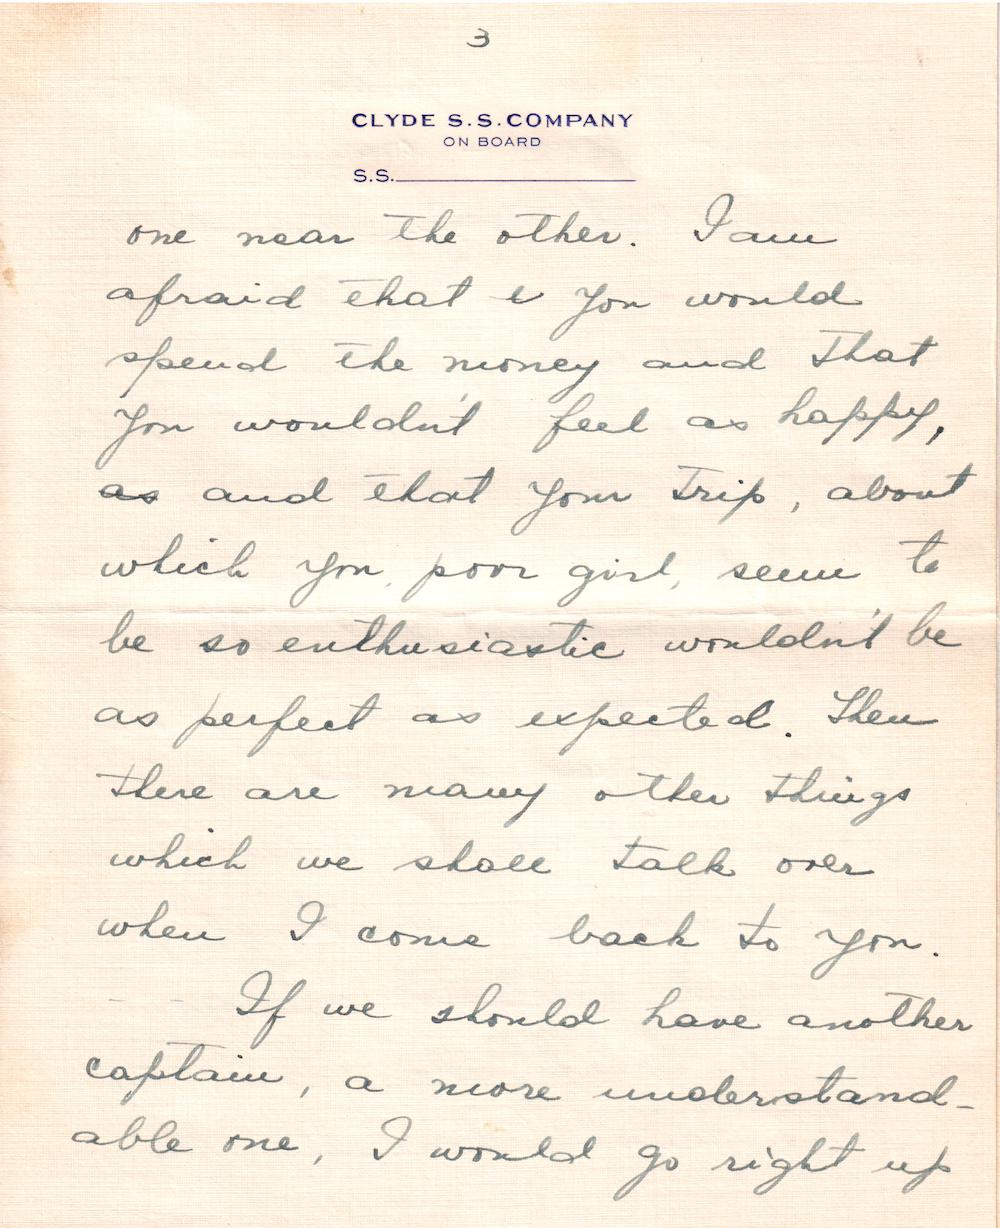 3
CLYDE S.S. COMPANY
ON BOARD
S.S.
one near the other. I am
afraid that you would
spend the money and that
you wouldn't feel as happy,
as and that your trip, about
which you, poor girl, seem to
be so enthusiastic wouldn't be
as perfect as expected. Then
there are many other things
which we shall talk over
when I come back to you.
If we should have another
captain, a more understand-
able one, I would go right up